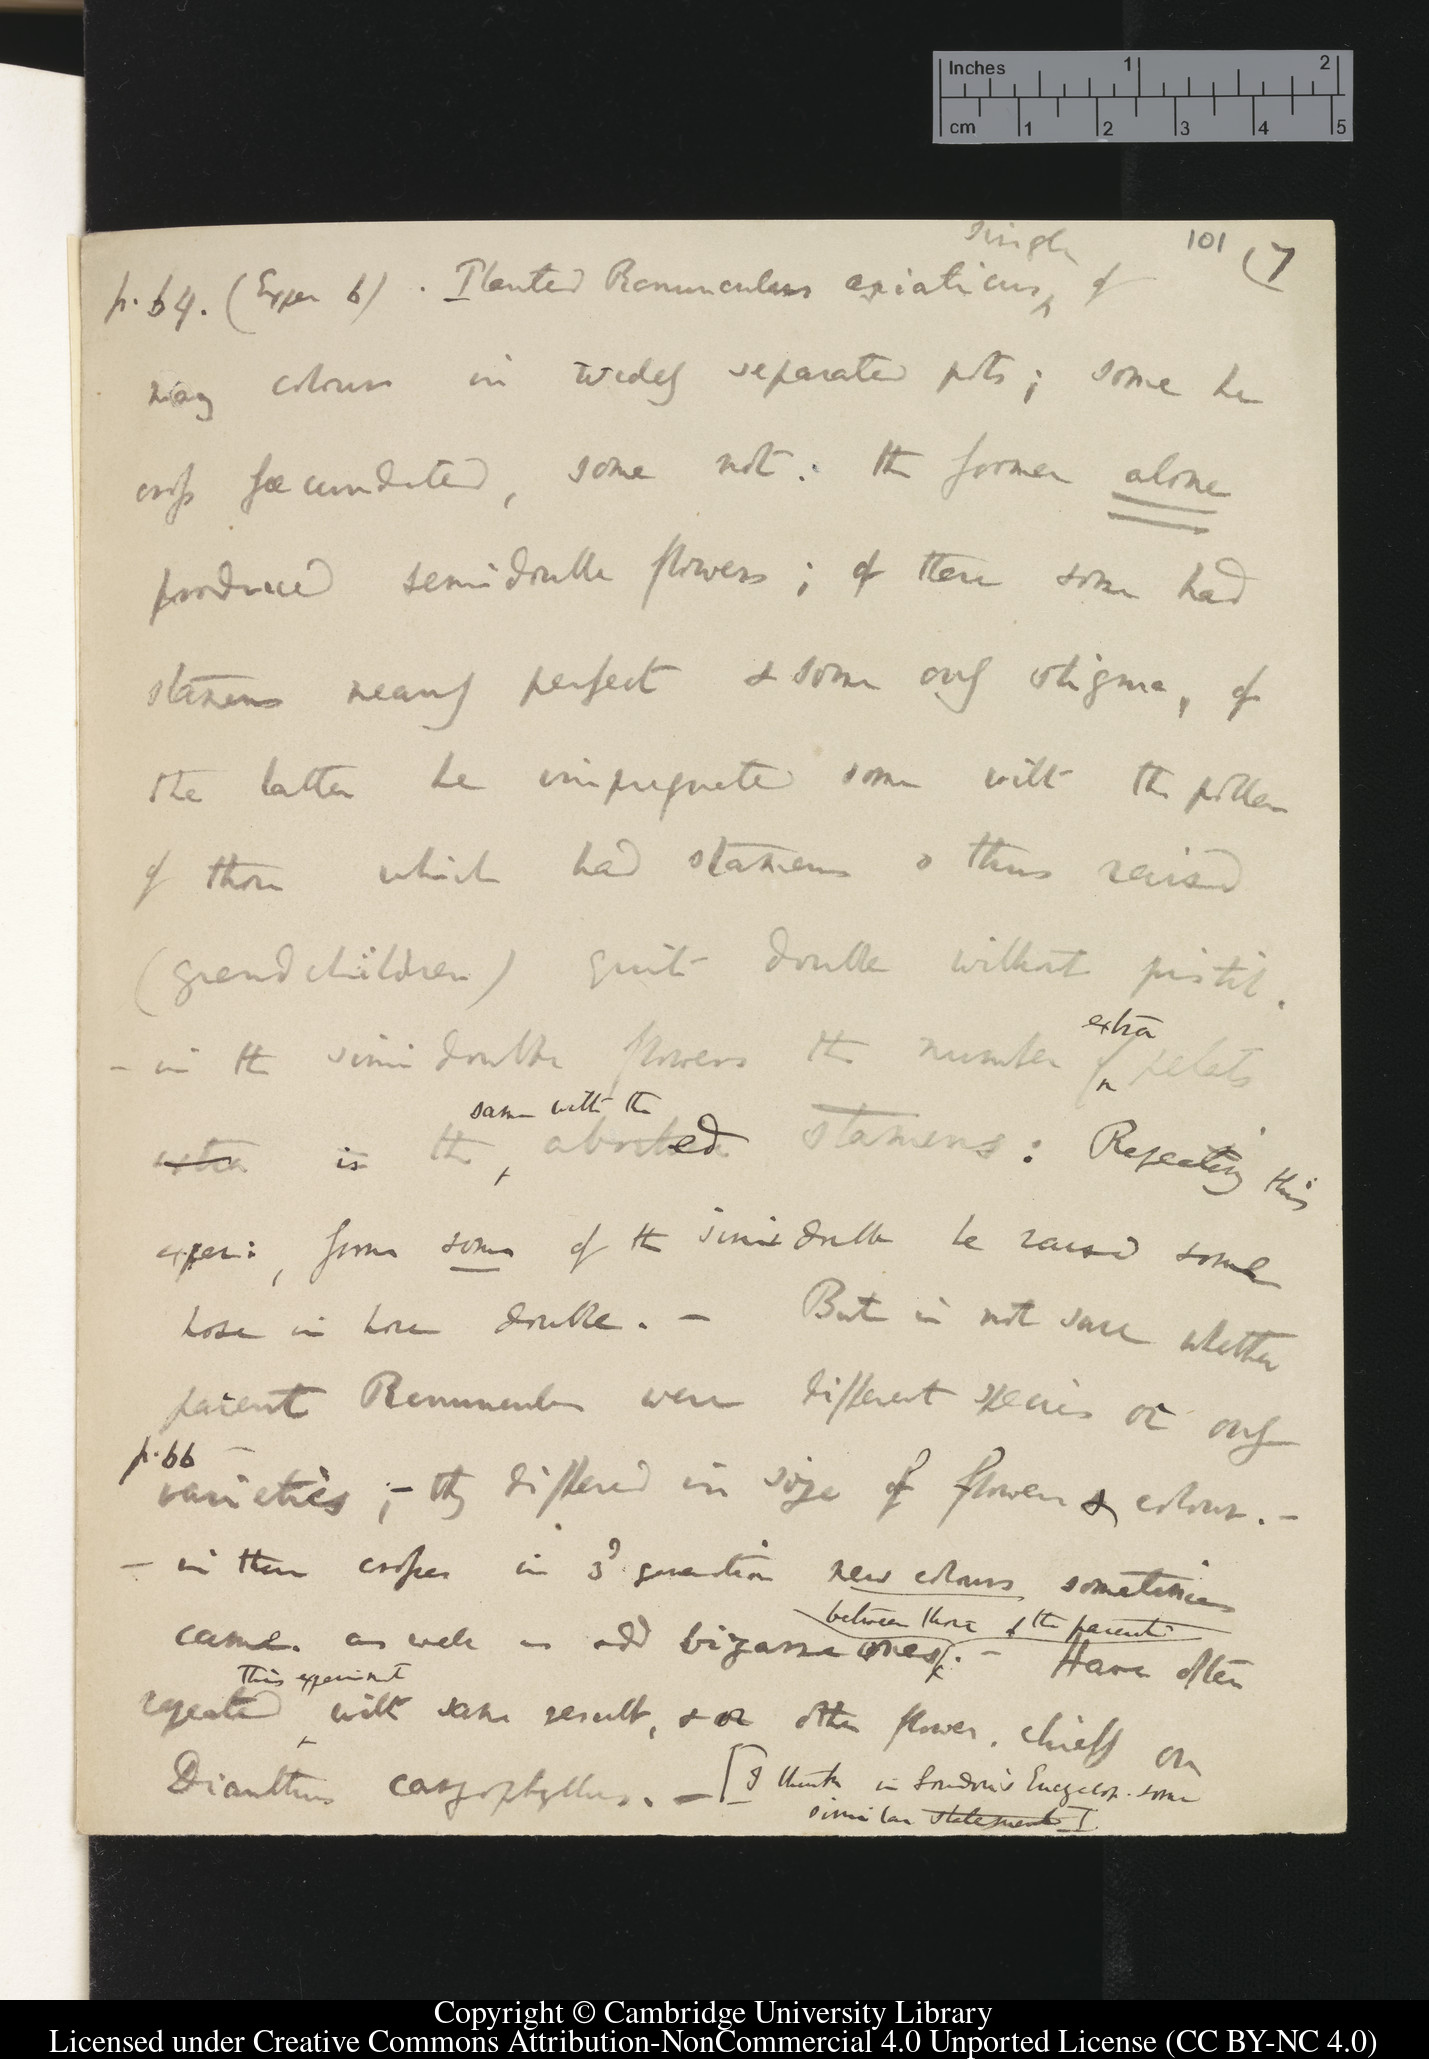 Inches 1 2
cm 1 2 3 4 5
101 (7
single
p. 64. (Exper 6). Planted Ranunculus asiaticus of
many colours in widely separated pots; some he
cross fæcundated, some not: the former alone
produced semidouble flowers; of these some had
stamens nearly perfect & some only stigma, of
the latter he impregnated some with the pollen
of those which had stamens & thus raised
(grandchildren) quite double without pistil.
extra
— in the semi double flowers the number of petals
same with the
extra is the aborted stamens: Repeating this
exper:, from some of the semi double he raised some
hose in hose double. — But is not sure whether
parent Ranunculus were different species or only
p. 66
varieties; — they differed in size of flower & colour. —
— in these crosses in 3d generation new colours sometimes
between those of the parents
came. as well as odd bizarre ones. — Have often
this experiment
repeated with same result, & on other flower, chiefly on
Dianthus caryophyllus. — [I think in Loudon's Encyclop. some
similar statements]
Copyright © Cambridge University Library
Licensed under Creative Commons Attribution-NonCommercial 4.0 Unported License (CC BY-NC 4.0)